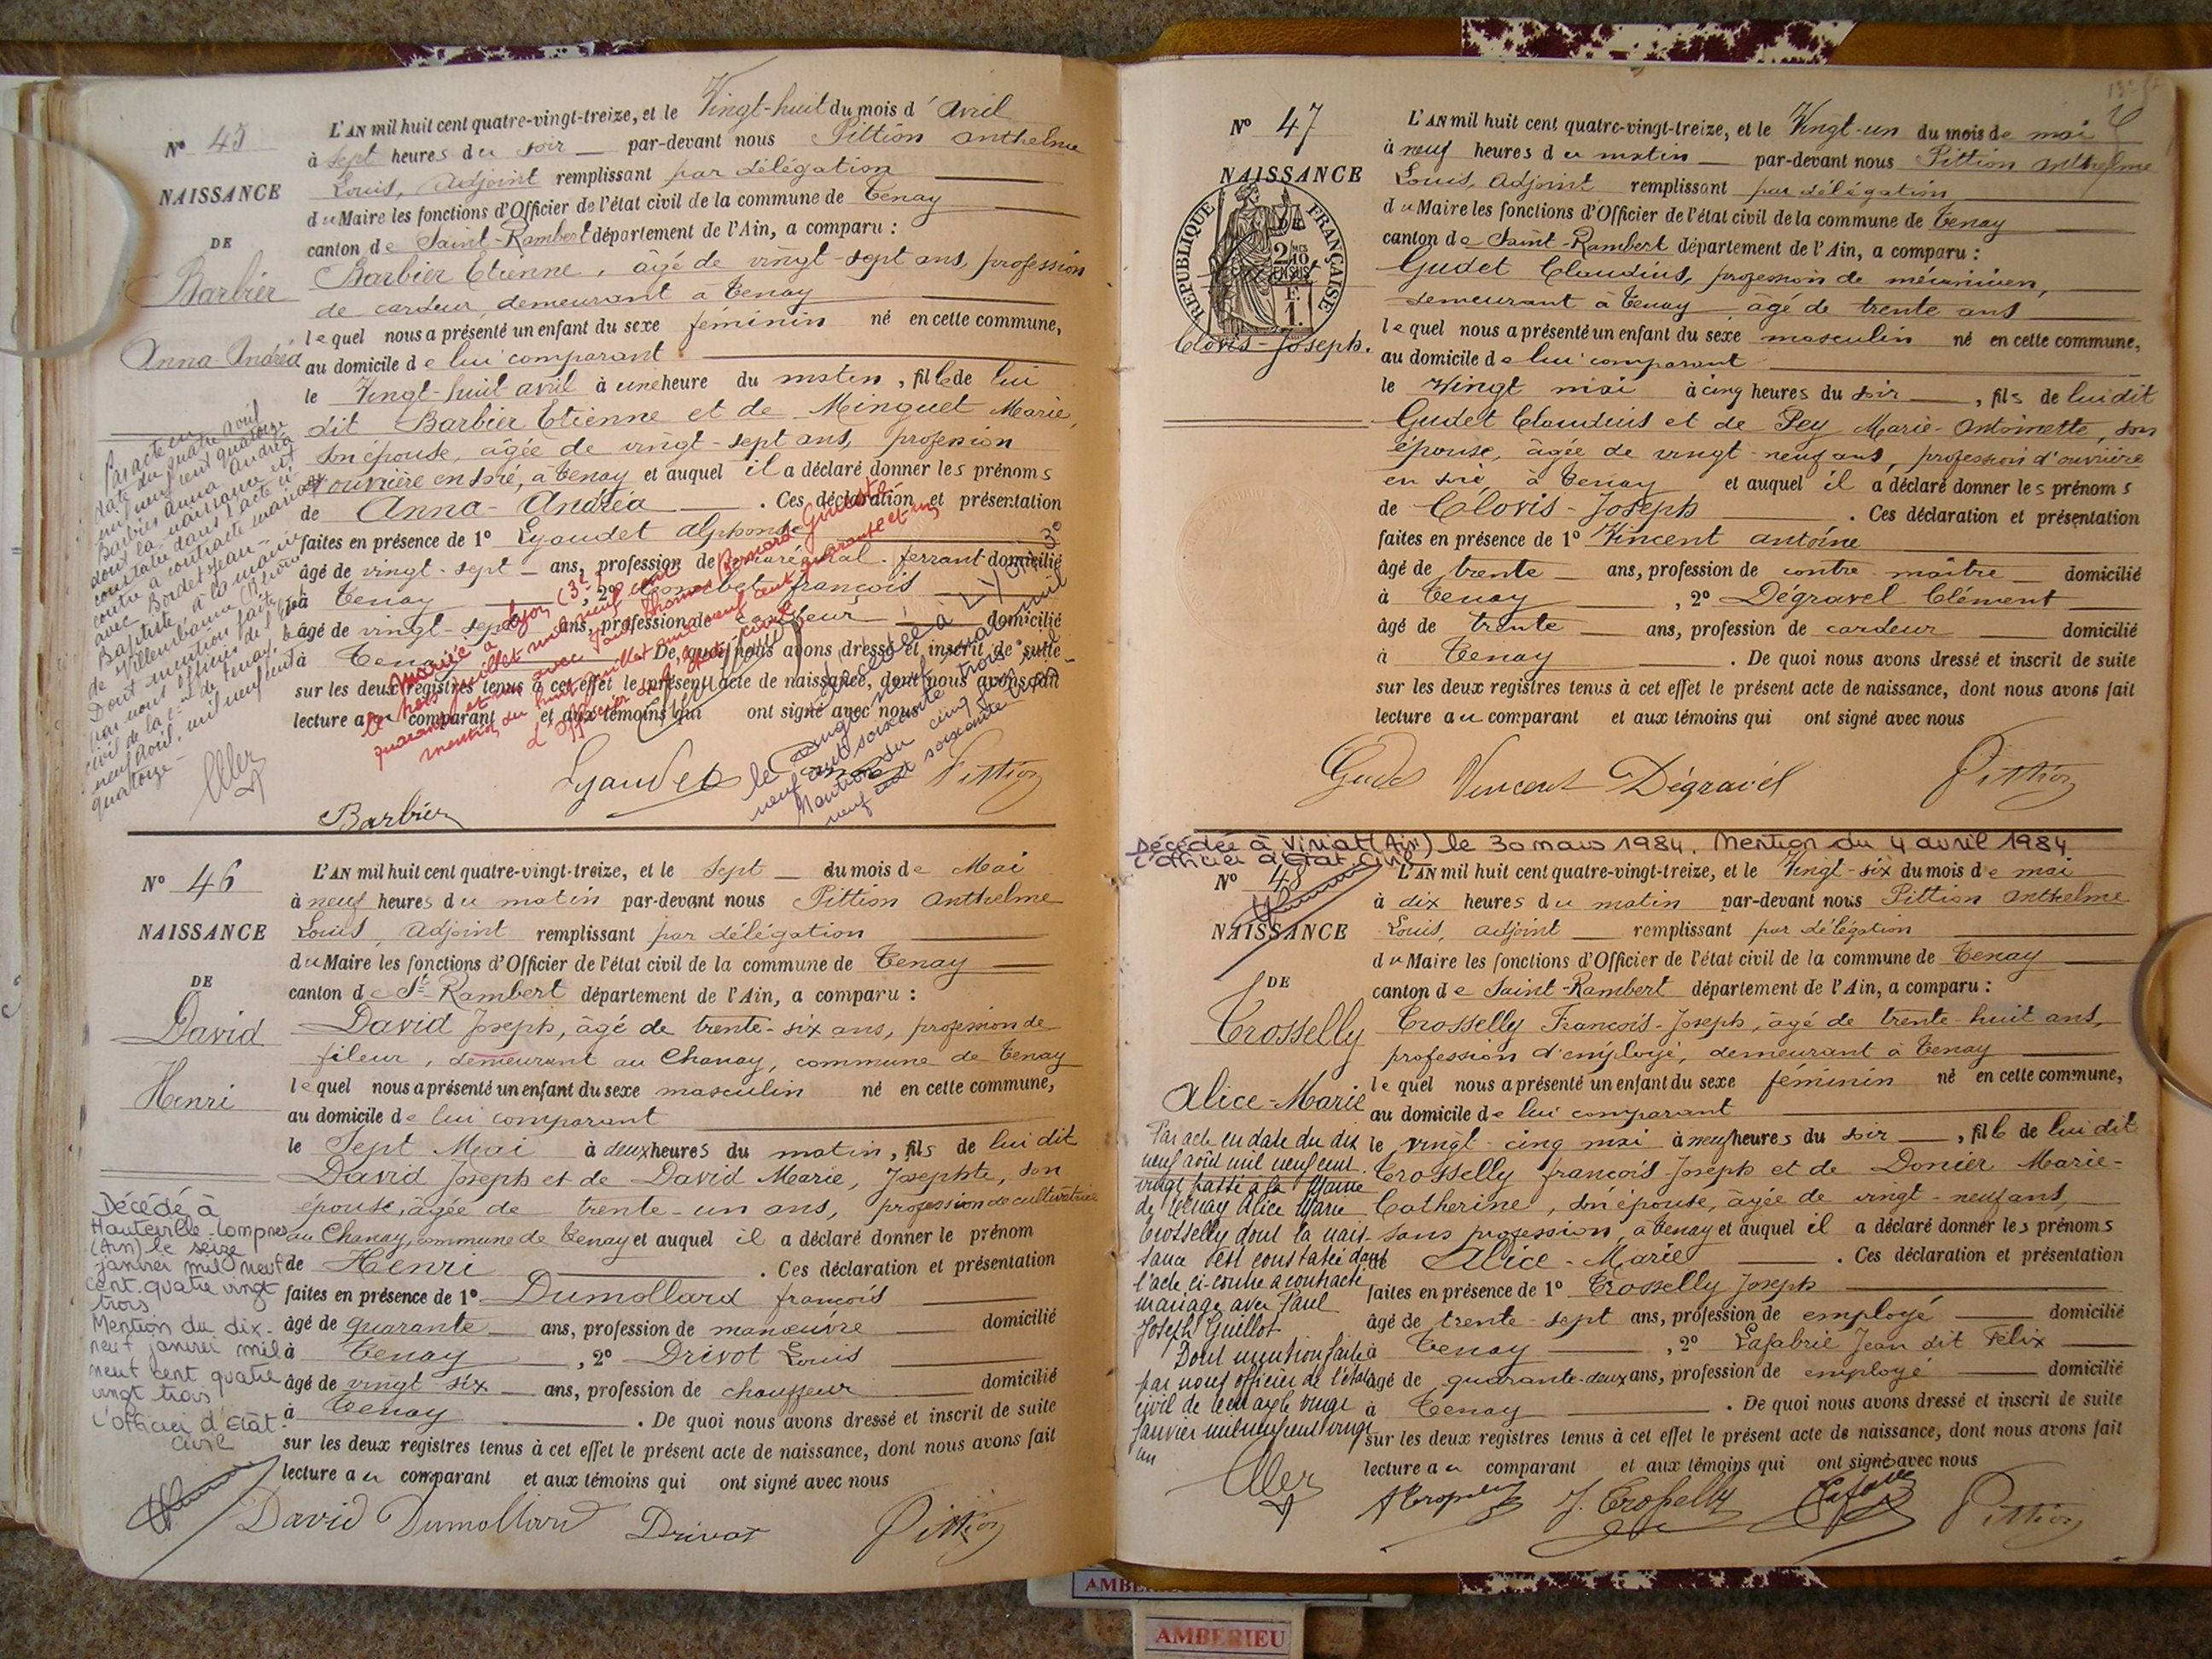 N° 45
NAISSANCE
DE
Barbier
Anna-Andréa
L'AN mil huit cent quatre-vingt-treize, et le Vingt-huit du mois d'Avril
à sept heures du soir par-devant nous Pittion Anthelme
Louis, Adjoint remplissant par délégation
du Maire les fonctions d'Officier de l'état civil de la commune de Tenay
canton de Saint-Rambert département de l'Ain, a comparu :
Barbier Etienne, âgé de vingt-sept ans, profession
de cardeur, demeurant à Tenay
lequel nous a présenté un enfant du sexe féminin né en cette commune,
au domicile de lui comparant
le Vingt-huit avril à une heure du matin, fille de lui
dit Barbier Etienne et de Minguet Marie,
son épouse, âgée de vingt-sept ans, profession
d'ouvrière en soie, à Tenay et auquel il a déclaré donner les prénoms
de Anna-Andréa. Ces déclaration et présentation
faites en présence de 1° Lyaudet Alphonse
âgé de vingt-sept ans, profession de maréchal-ferrant domicilié
à Tenay, 2° François
âgé de vingt-sept ans, profession de domicilié
à Tenay. De quoi nous avons dressé et inscrit de suite
sur les deux registres tenus à cet effet le présent acte de naissance, dont nous avons fait
lecture au comparant et aux témoins qui ont signé avec nous
Par acte en
date du quatre avril
mil neuf cent quatorze
Barbier Anna Andréa
dont la naissance est
constatée dans l'acte ci-
contre a contracté mariage
avec Bordet Jean-
Baptiste à la mairie
de Villeurbanne (Rhône)
Dont mention faite
par nous officier de l'état
civil de la cne de Tenay, le
neuf avril, mil neuf cent
quatorze
Mariée à Lyon (3e)
le trois juillet mil neuf cent
quarante et un avec Paul Thomas Bernard
mention du huit juillet mil neuf cent quarante et un
L'officier de l'état civil
Décédée à Lyon 3e
le cinq mai mil
neuf cent soixante trois
Mention du cinq
neuf cent soixante
Lyaudet Pittion
Barbier
N° 46
NAISSANCE
DE
David
Henri
L'AN mil huit cent quatre-vingt-treize, et le Sept du mois de Mai
à neuf heures du matin par-devant nous Pittion Anthelme
Louis, Adjoint remplissant par délégation
du Maire les fonctions d'Officier de l'état civil de la commune de Tenay
canton de St-Rambert département de l'Ain, a comparu :
David Joseph, âgé de trente-six ans, profession de
fileur, demeurant au Chanay, commune de Tenay
lequel nous a présenté un enfant du sexe masculin né en cette commune,
au domicile de lui comparant
le Sept Mai à deux heures du matin, fils de lui dit
David Joseph et de David Marie, Josephte, son
épouse, âgée de trente-un ans, profession de cultivatrice
au Chanay, commune de Tenay et auquel il a déclaré donner le prénom
de Henri. Ces déclaration et présentation
faites en présence de 1° Dumollard françois
âgé de quarante ans, profession de manœuvre domicilié
à Tenay, 2° Drivot Louis
âgé de vingt-six ans, profession de chauffeur domicilié
à Tenay. De quoi nous avons dressé et inscrit de suite
sur les deux registres tenus à cet effet le présent acte de naissance, dont nous avons fait
lecture au comparant et aux témoins qui ont signé avec nous
Décédé à
Hauteville-Lompnes
(Ain) le seize
janvier mil neuf
cent quatre vingt
trois
Mention du dix-
neuf janvier mil
neuf cent quatre
vingt trois
L'officier d'Etat
civil
David Dumollard Drivot Pittion
N° 47
NAISSANCE
REPUBLIQUE FRANÇAISE
2/10 EN SUS
F.
1.
Clovis-Joseph.
L'AN mil huit cent quatre-vingt-treize, et le Vingt-un du mois de mai
à neuf heures du matin par-devant nous Pittion Anthelme
Louis, Adjoint remplissant par délégation
du Maire les fonctions d'Officier de l'état civil de la commune de Tenay
canton de Saint-Rambert département de l'Ain, a comparu :
Gudet Claudius, profession de mécanicien,
demeurant à Tenay, âgé de trente ans
lequel nous a présenté un enfant du sexe masculin né en cette commune,
au domicile de lui comparant
le Vingt mai à cinq heures du soir, fils de lui dit
Gudet Claudius et de Pey Marie-Antoinette, son
épouse, âgée de vingt-neuf ans, profession d'ouvrière
en soie, à Tenay et auquel il a déclaré donner les prénoms
de Clovis-Joseph. Ces déclaration et présentation
faites en présence de 1° Vincent Antoine
âgé de trente ans, profession de contre-maître domicilié
à Tenay, 2° Dégravel Clément
âgé de trente ans, profession de cardeur domicilié
à Tenay. De quoi nous avons dressé et inscrit de suite
sur les deux registres tenus à cet effet le présent acte de naissance, dont nous avons fait
lecture au comparant et aux témoins qui ont signé avec nous
Gudet Vincent Dégravel Pittion
Décédée à Viriat (Ain) le 30 mars 1984. Mention du 4 avril 1984
L'officier d'Etat Civil
N° 48
NAISSANCE
DE
Crosselly
Alice-Marie
L'AN mil huit cent quatre-vingt-treize, et le Vingt-six du mois de mai
à dix heures du matin par-devant nous Pittion Anthelme
Louis, adjoint remplissant par délégation
du Maire les fonctions d'Officier de l'état civil de la commune de Tenay
canton de Saint-Rambert département de l'Ain, a comparu :
Crosselly François-Joseph, âgé de trente-huit ans,
profession d'employé, demeurant à Tenay
lequel nous a présenté un enfant du sexe féminin né en cette commune,
au domicile de lui comparant
le vingt-cinq mai à neuf heures du soir, fille de lui dit
Crosselly françois-Joseph et de Donier Marie-
Catherine, son épouse, âgée de vingt-neuf ans,
sans profession, à Tenay et auquel il a déclaré donner les prénoms
de Alice-Marie. Ces déclaration et présentation
faites en présence de 1° Crosselly Joseph
âgé de trente-sept ans, profession de employé domicilié
à Tenay, 2° Lafabrie Jean dit Félix
âgé de quarante-deux ans, profession de employé domicilié
à Tenay. De quoi nous avons dressé et inscrit de suite
sur les deux registres tenus à cet effet le présent acte de naissance, dont nous avons fait
lecture au comparant et aux témoins qui ont signé avec nous
Par acte en date du dix
neuf août mil neuf cent
vingt passé à la Mairie
de Tenay Alice Marie
Crosselly dont la nais-
sance est constatée dans
l'acte ci-contre a contracté
mariage avec Paul
Joseph Guillot
Dont mention faite
par nous officier de l'état
civil de Tenay le vingt
janvier mil neuf cent vingt
un
J. Crosselly Pittion
AMBERIEU